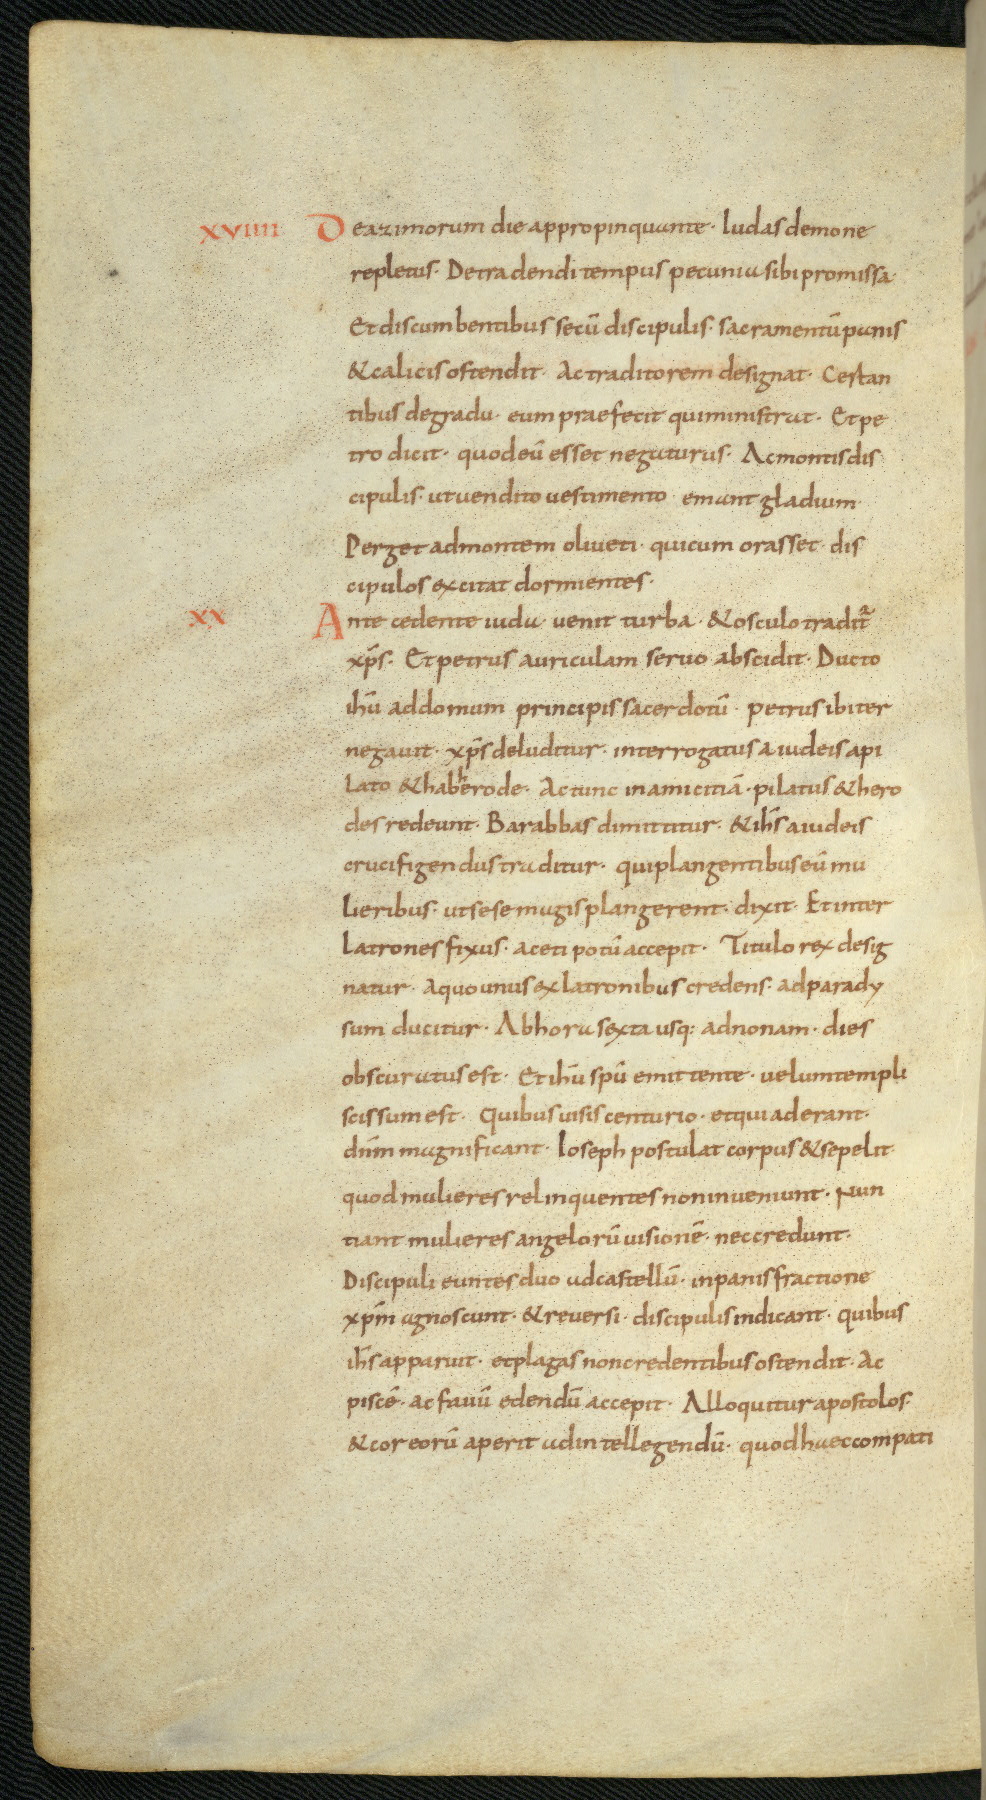 XVIIII De azimorum die appropinquante · Iudas demone
repletus · De tradendi tempus pecunia sibi promissa
Et discumbentibus secū discipulis · sacramentū panis
& calicis ostendit · Ac traditorem designat · Certan
tibus de gradu · eum praefecit qui ministrat · Et pe
tro dicit · quod eū esset negaturus · Ac montis dis
cipulis · ut vendito vestimento emant gladium
Perget ad montem oliveti · qui cum orasset · dis
cipulos excitat dormientes ·
XX Ante cedente iuda · venit turba · & osculo tradit̄
xp̄s · Et petrus auriculam servo abscidit · Ducto
ihū ad domum principis sacerdotū · petrus ibi ter
negavit · xp̄s deluditur · interrogatus a iudeis a pi
lato & hab herode · Ac tunc in amicitiā · pilatus & hero
des redeunt · Barabbas dimittitur · & ih̄s a iudeis
crucifigendus traditur · qui plangentibus eū mu
lieribus · ut sese magis plangerent · dixit · Et inter
latrones fixus · aceti potū accepit · Titulo rex desig
natur · A quo unus ex latronibus credens · ad parady
sum ducitur · Ab hora sexta usq: ad nonam · dies
obscuratus est · Et ihū spū emittente · velum templi
scissum est · Quibus visis centurio · et qui aderant ·
dn̄m magnificant · Ioseph postulat corpus & sepelit
quod mulieres relinquentes non inveniunt · Nun
tiant mulieres angelorū visionē · nec credunt ·
Discipuli euntes duo ad castellū · in panis fractione
xp̄m agnoscunt · & reversi · discipulis indicant · quibus
ih̄s apparuit · et plagas non credentibus ostendit · Ac
piscē · ac favū edendū accepit · Alloquitur apostolos ·
& cor eorū aperit ad intellegendū · quod haec compati